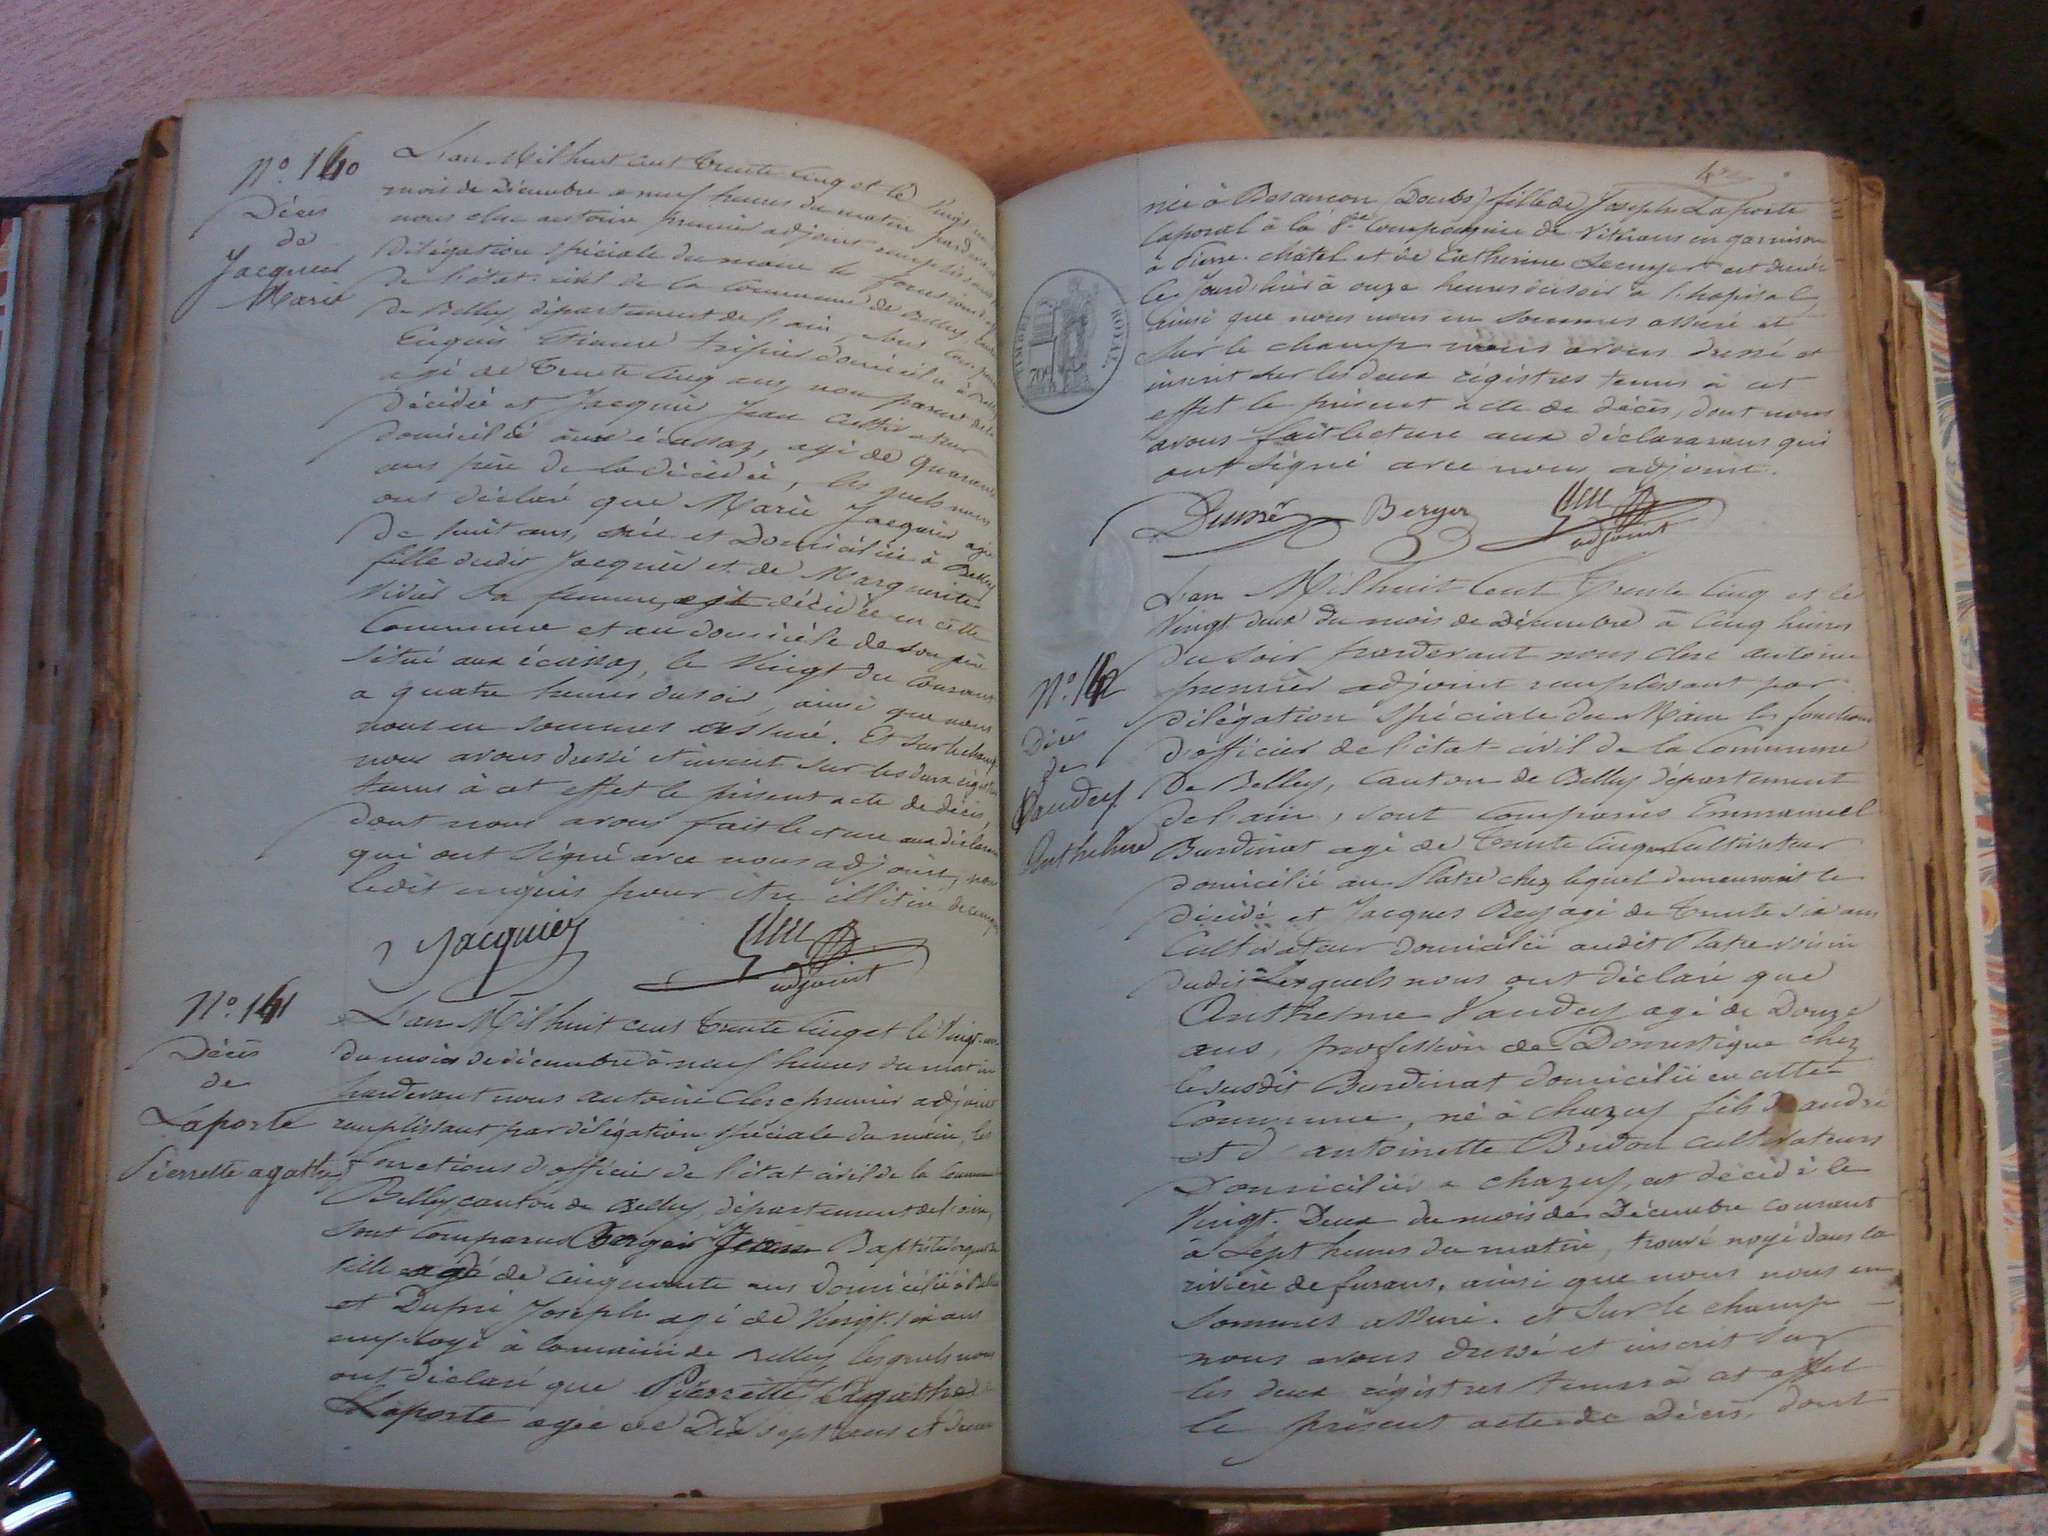 N.o 140
Décès
de
Jacquier
Marie
L'an Mil huit cent trente cinq et le Vingt
mois de Décembre a neuf heures du matin pardevant
nous clerc antoine premier adjoint remplissant
délégation spéciale du maire les fonctions
de l'état-civil de la Commune de Belley,
de Belley, département de l'ain, sont comparus
Enquis Etienne tripier domicilié à Belley
agé de trente cinq ans, non parent de la
décédée et Jacquier Jean cultivateur
domicilié aux écassaz, agé de quarante
ans père de la décédée, les quels nous
ont déclaré que Marie Jacquier agée
de huit ans, née et domiciliée à Belley
fille dudit Jacquier et de Marguerite
sa femme, est décédée en cette
Commune et au domicile de son père
situé aux écassaz, le Vingt du Courant
a quatre heures du soir, ainsi que nous
nous en sommes assuré. Et sur le champ
nous avons dressé et inscrit sur les deux régistres
tenus à cet effet le présent acte de décès,
dont nous avons fait lecture aux déclarans
qui ont signé avec nous adjoint, non
ledit enquis pour être illitéré de ce enquis
Jacquier
adjoint
N.o 141
Décès
de
Laporte
Pierrette agathe
L'an Mil huit cent trente Cinq et le Vingt-un
du mois de décembre à neuf heures du matin
pardevant nous antoine Clerc premier adjoint
remplissant par délégation spéciale du maire, les
fonctions d'officier de l'état civil de la Commune
Belley canton de Belley, département de l'ain,
sont Comparus Berger Jean Baptiste
agé de cinquante ans domicilié à Belley
et Dupré Joseph agé de Vingt six ans
employé à la mairie de Belley, lesquels nous
ont déclaré que Pierrette Agathe
Laporte agée de Dix sept ans et demi
née à Besançon (Doubs) fille de Joseph Laporte
Caporal à la 8e Compagnie de Vétérans en garnison
à Pierre-châtel et de Catherine Lecuyer est décédée
ce jourd'hui à onze heures du soir a l'hopital
ainsi que nous nous en sommes assuré et
sur le champ nous avons dressé et
inscrit sur les deux régistres tenus à cet
effet le présent acte de décès, dont nous
avons fait lecture aux déclarans qui
ont signé avec nous adjoint.
TIMBRE ROYAL
70c
Berger
adjoint
N.o 142
Décès
de
Vaudey
Anthelme
L'an Mil huit Cent Trente Cinq et le
Vingt deux du mois de Décembre à Cinq heures
du soir pardevant nous clerc antoine
premier adjoint remplissant par
délégation spéciale du Maire les fonctions
d'officier de l'état-civil de la Commune
de Belley, Canton de Belley département
de l'ain, sont comparus Emmanuel
Burdinat agé de trente cinq Cultivateur
domicilié au Platre chez lequel demeuroit le
décédé et Jacques Rey agé de trente six ans
Cultivateur domicilié audit Platre voisin
dudit Lesquels nous ont déclaré que
Anthesme Vaudey agé de Douze
ans, profession de Domestique chez
le susdit Burdinat domicilié en cette
Commune, né à chazey fils d'andré
et d'antoinette Bridon cultivateurs
Domiciliés a chazey, est décédé le
Vingt-Deux du mois de Décembre courant
à Sept heures du matin, trouvé noyé dans la
rivière de furans, ainsi que nous nous en
sommes assuré. et sur le champ
nous avons dressé et inscrit sur
les deux régistres tenus à cet effet
le présent acte de Décès, dont